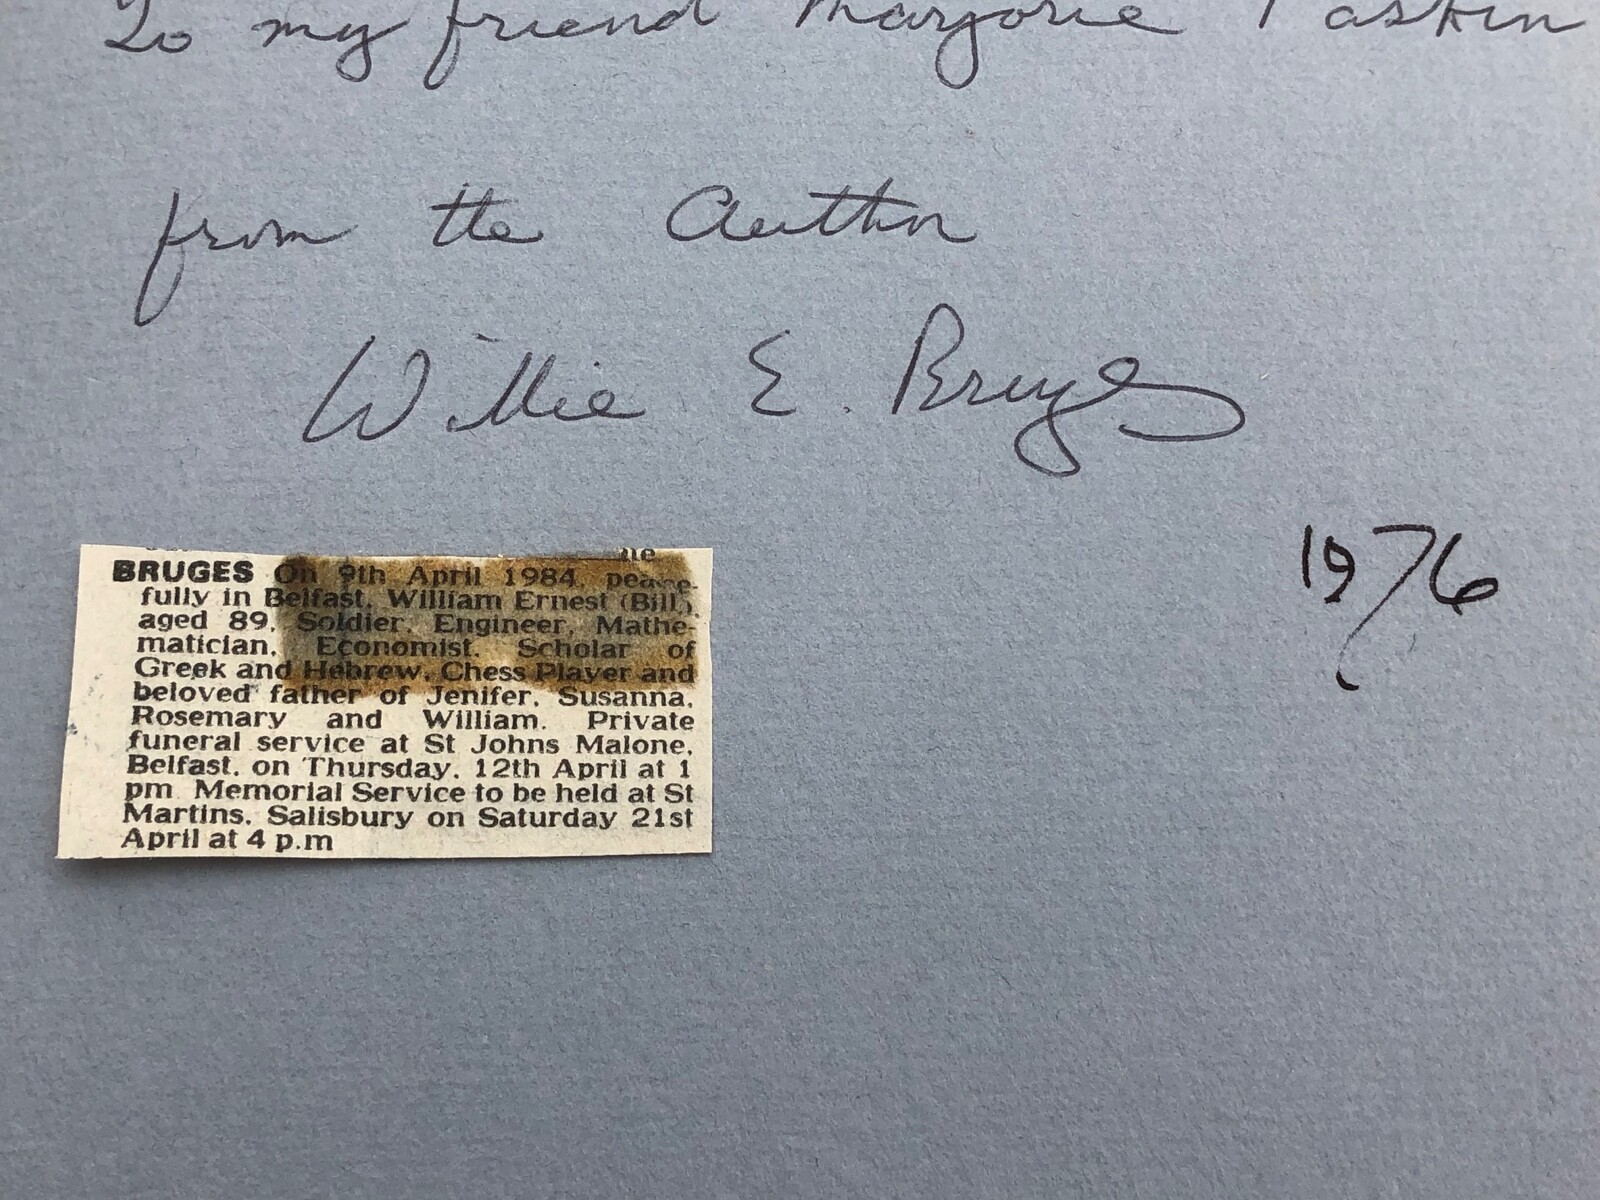 To my friend Marjorie Paskin
from the Author
Willie E. Bruges
1976
BRUGES On 9th April 1984, peace-
fully in Belfast, William Ernest (Bill),
aged 89, Soldier, Engineer, Mathe-
matician, Economist, Scholar of
Greek and Hebrew, Chess Player and
beloved father of Jenifer, Susanna,
Rosemary and William. Private
funeral service at St Johns Malone,
Belfast, on Thursday, 12th April at 1
pm Memorial Service to be held at St
Martins, Salisbury on Saturday 21st
April at 4 p.m